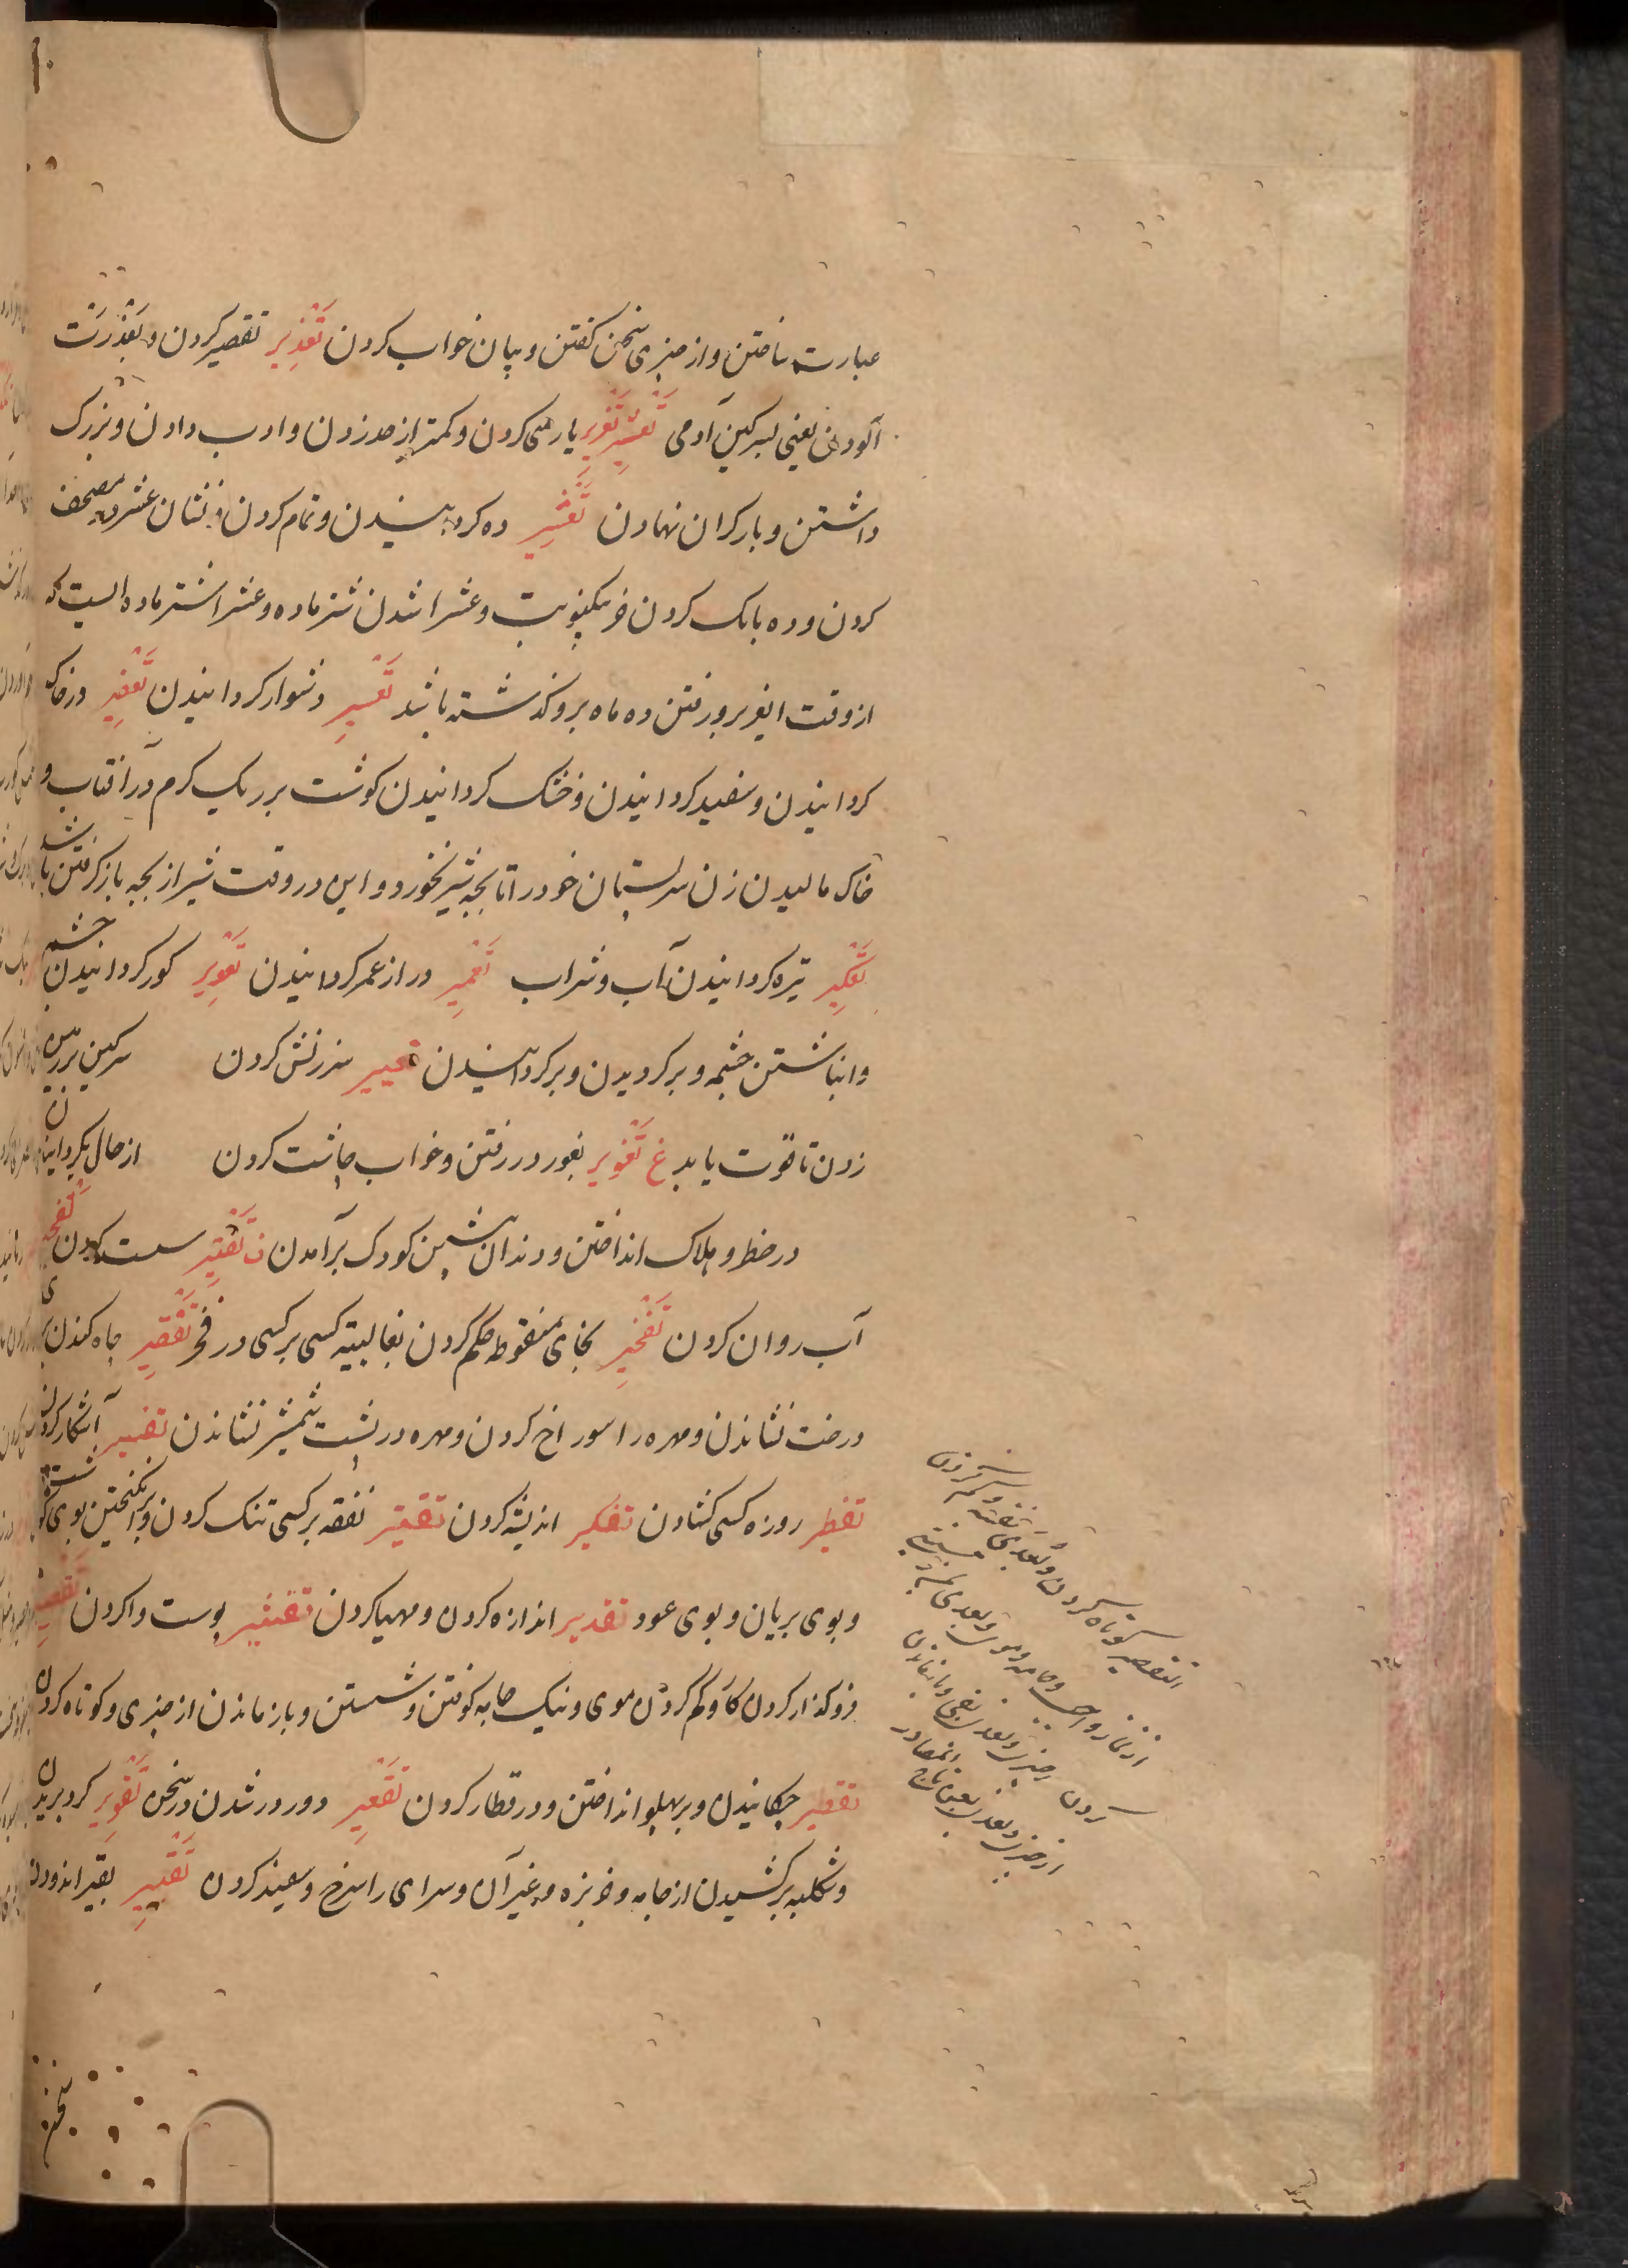 عبارت ساختن و از چیزی سخن کفتن و بیان خواب کردن تَعْذِیر تقصیر کردن و بعَذْرَت
آلودن یعنی بسرکین آدمی تَعْزِیر یارمندی کردن و کمتر از حد زدن و ادب دادن و بزرک
داشتن و بار کران نهادن تَعْشِیر ده کردانیدن و تمام کردن و نشان عشر در مصحف
کردن و ده بانک کردن خر بیکنوبت و عشرا شدن شتر ماده و عشرا شتر ماده ایست که
از وقت ایغر برو رفتن ده ماه برو کذشته باشد تَعْسِیر دشوار کردانیدن تَعْفِیر در خاک
کردانیدن و سفید کردانیدن و خشک کردانیدن کوشت بر ریک کرم در آفتاب و
خاک مالیدن زن سر پستان خود را تا بچه شیر نخورد و این در وقت شیر از بچه باز کرفتن باشد
تَعْکِیر تیره کردانیدن آب و شراب تَعْمِیر دراز عمر کردانیدن تَعْوِیر کور کردانیدن چشم
و انباشتن چشمه و بر کردیدن و بر کردانیدن تعییر سرزنش کردن سرکین بر
زدن تا قوت یابد غ تَغْوِیر بغور در رفتن و خواب چاشت کردن از حال بکردانیدن
در خطر و هلاک انداختن و دندان پیشین کودک برآمدن ف تَفْتِیر سست کردن تَفْجِیر
آب روان کردن تَفْخِیر بخای منقوطه حکم کردن بغالبیّت کسی بر کسی در فخر تَفْقِیر چاه کندن برای
درخت نشاندن و مهره را سوراخ کردن و مهره در پشت شمشیر نشاندن تفسیر آشکار کردن
تفطیر روزه کسی کشادن تفکیر اندیشه کردن تقتیر نفقه بر کسی تنک کردن و برانکیختن بوی کوشت
و بوی بریان و بوی عود تقدیر اندازه کردن و مهیا کردن تقشیر پوست وا کردن تقصیر
فرو کذار کردن کار و کم کردن موی و نیک جامه کوفتن و شستن و باز ماندن از چیزی و کوتاه کردن
تقطیر چکانیدن و بر پهلو انداختن و در قطار کردن تَقْعِیر دور در شدن در سخن تَقْوِیر کرد بریدن
و شکلبه بر کشیدن از جامه و خربزه و غیر آن و سرای را سرخ و سفید کردن تَقْیِیر بقیر اندودن
التقصیر کوتاه کردن و یُعدی بنفسه
از نماز واجب و جامه و موی و یعدی بمن
کردن چیزی و یعدی بفی و باز ماندن
از چیزی و یعدی بعن تاج المصادر